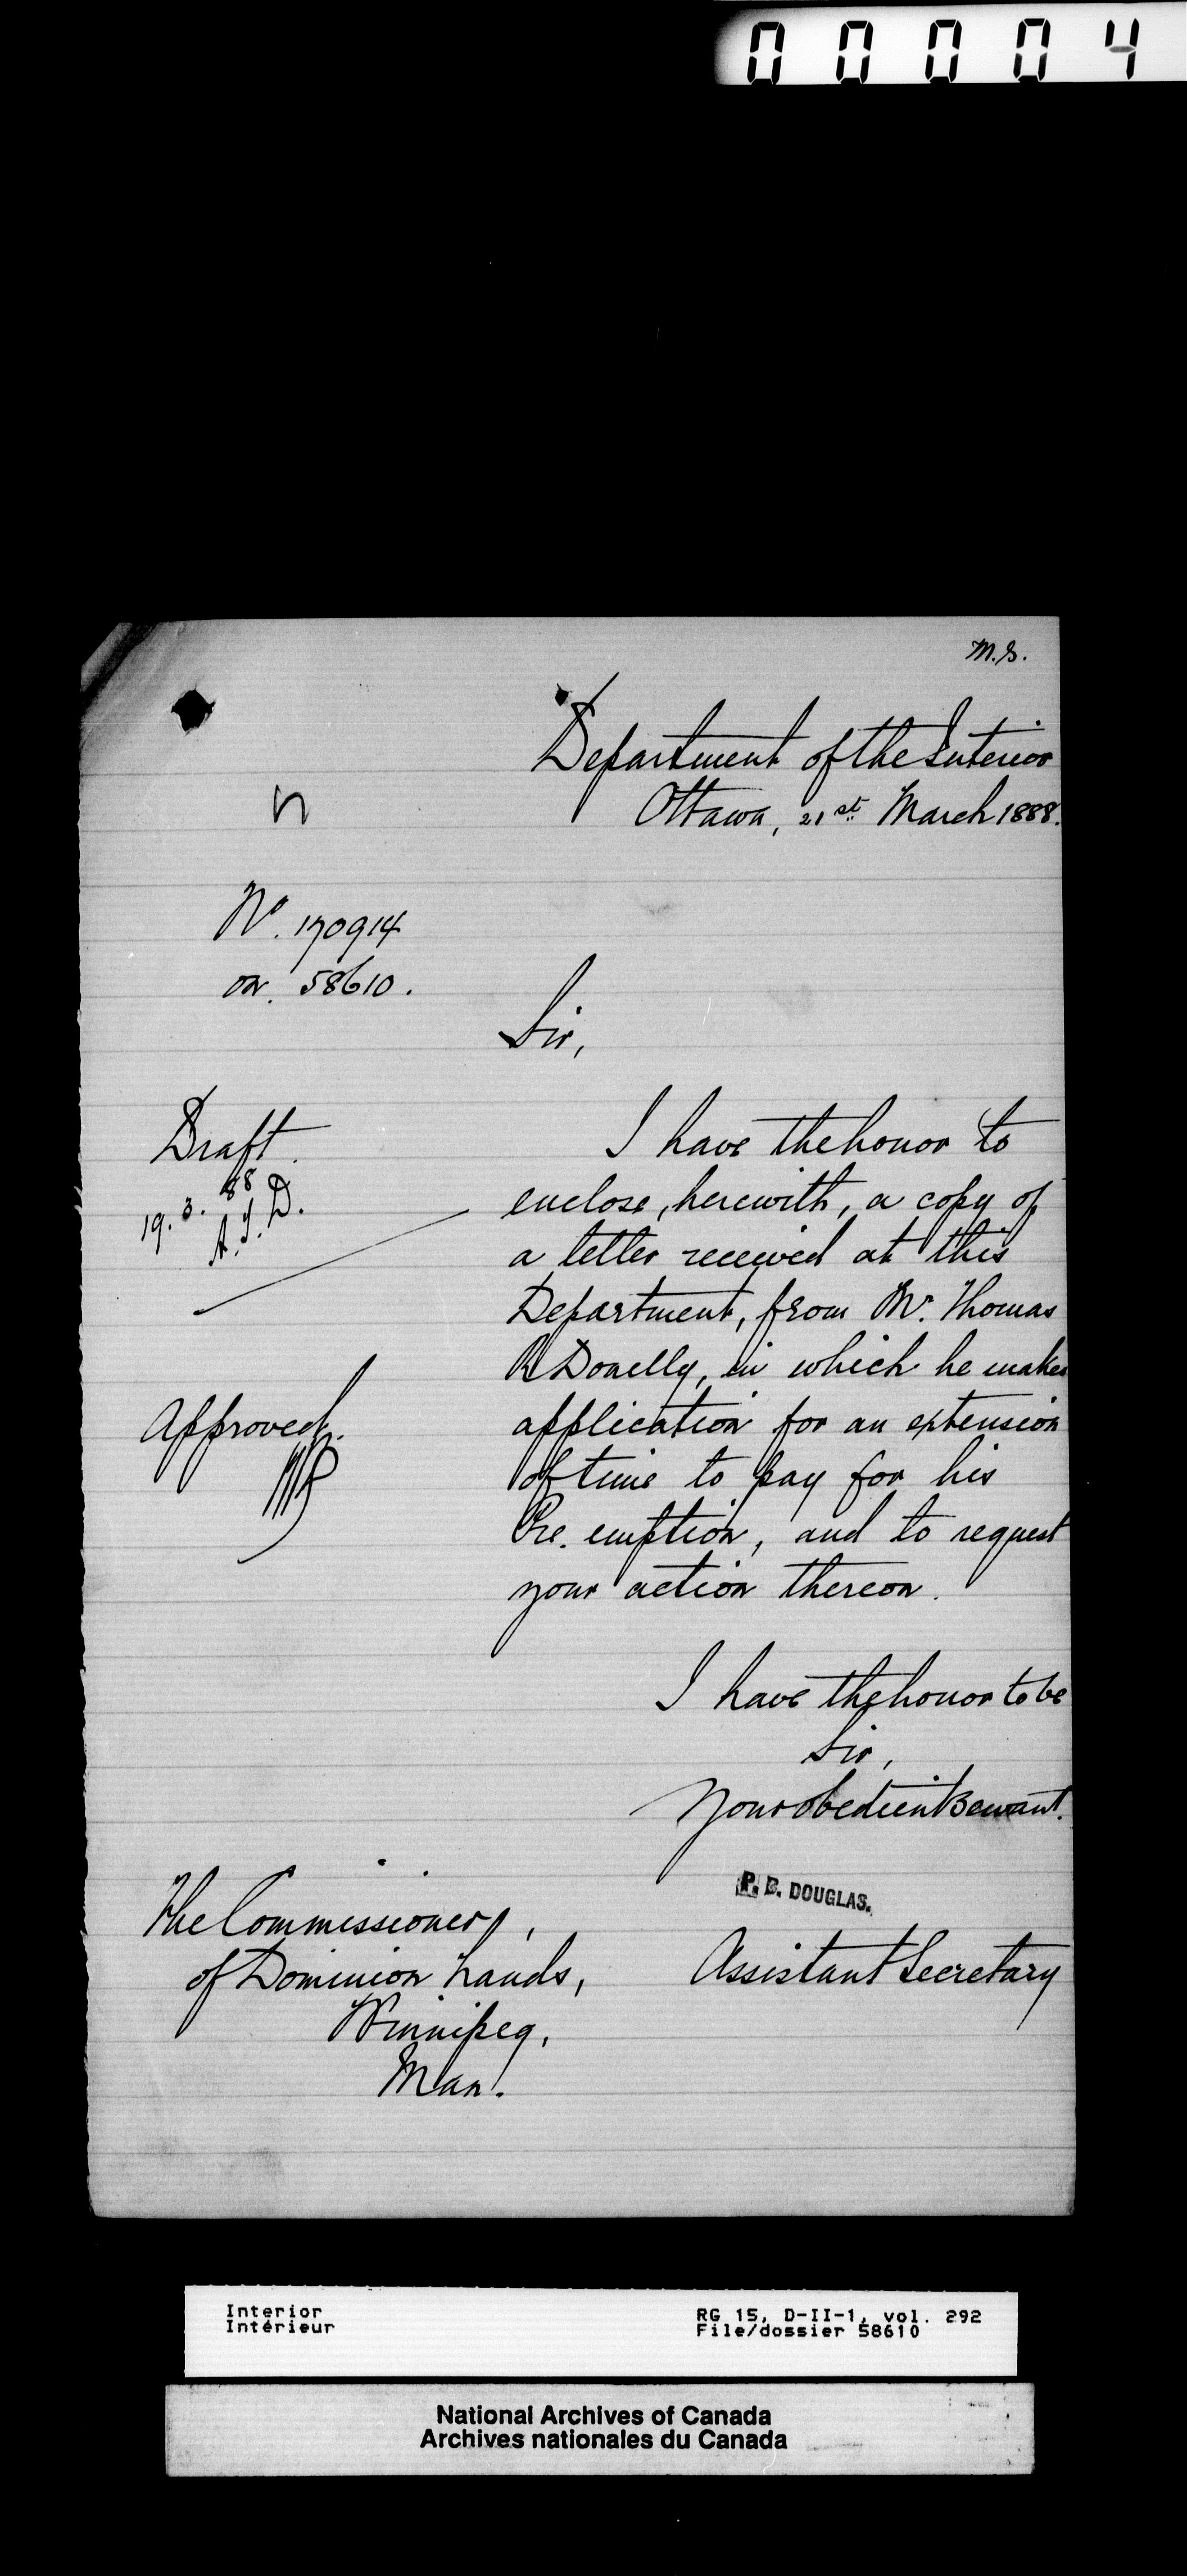 00004
M.S.
Department of the Interior
Ottawa, 21st March 1888.
n
No. 170914
on. 58610.
Sir,
Draft.
19.3.88
A.J.D.
I have the honor to
enclose, herewith, a copy of
a letter received at this
Department, from Mr. Thomas
R Donelly, in which he makes
application for an extension
of time to pay for his
Pre.emption, and to request
your action thereon.
Approved.
I have the honor to be
Sir,
Your obedient Servant.
P. B. DOUGLAS.
Assistant Secretary
The Commissioner,
of Dominion Lands,
Winnipeg,
Man.
Interior
Intérieur
RG 15, D-II-1, vol. 292
File/dossier 58610
National Archives of Canada
Archives nationales du Canada